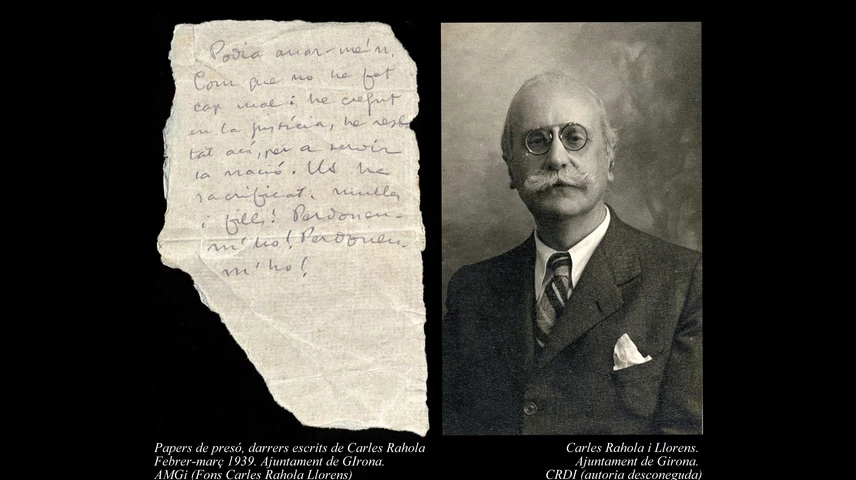 Podia anar-me'n.
Com que no he fet
cap mal i he cregut
en la justícia, he res-
tat ací, per a servir
la nació. Us he
sacrificat, muller
i fills! Perdoneu-
m'ho! Perdoneu-
m'ho!
Papers de presó, darrers escrits de Carles Rahola
Febrer-març 1939. Ajuntament de GIrona.
AMGi (Fons Carles Rahola Llorens)
Carles Rahola i Llorens.
Ajuntament de Girona.
CRDI (autoria desconeguda)